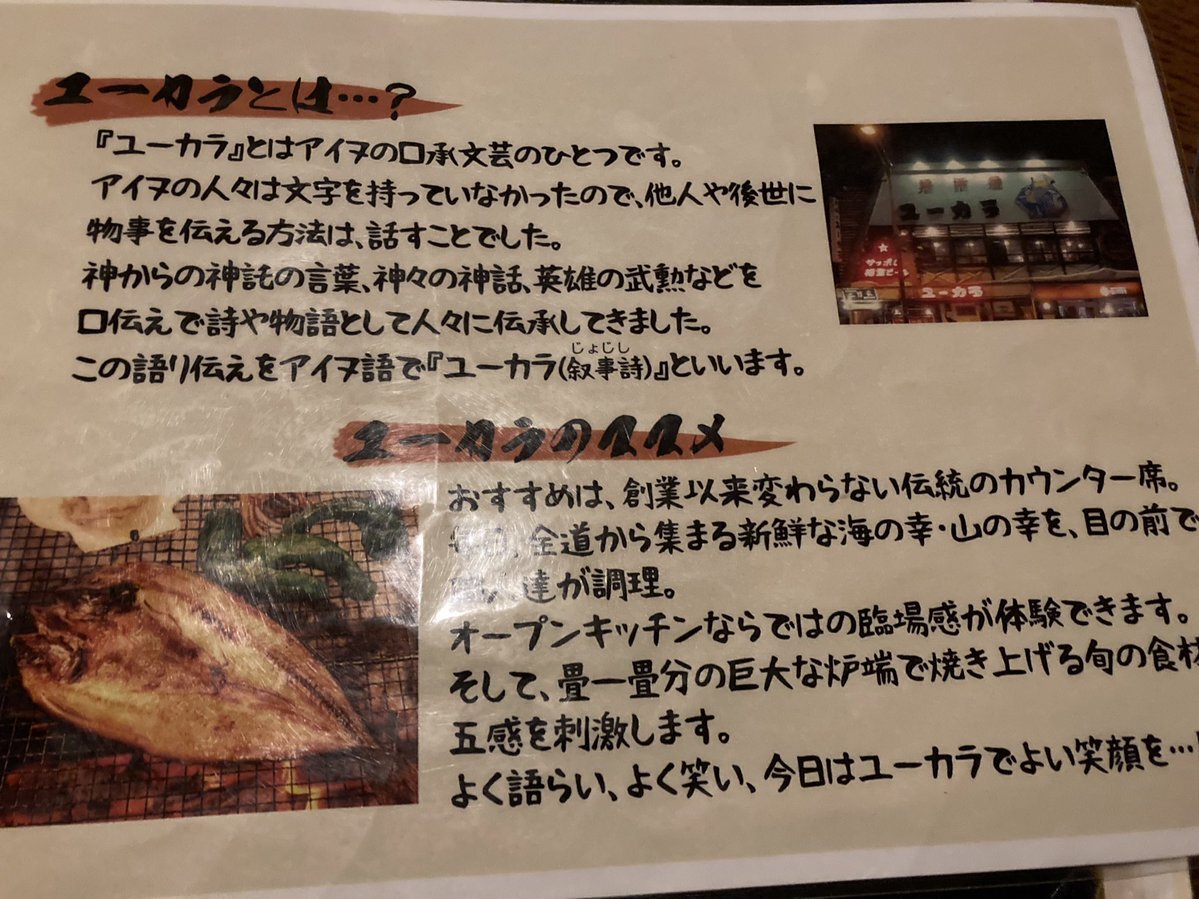 ユーカラとは…?
『ユーカラ』とはアイヌの口承文芸のひとつです。
アイヌの人々は文字を持っていなかったので、他人や後世に
物事を伝える方法は、話すことでした。
神からの神託の言葉、神々の神話、英雄の武勲などを
口伝えで詩や物語として人々に伝承してきました。
じょじし
この語り伝えをアイヌ語で『ユーカラ(叙事詩)』といいます。
ユーカラ
サッポロ
ユーカラ
ユーカラのススメ
おすすめは、創業以来変わらない伝統のカウンター席。
全道から集まる新鮮な海の幸・山の幸を、目の前で
達が調理。
オープンキッチンならではの臨場感が体験できます。
そして、畳一畳分の巨大な炉端で焼き上げる旬の食材
五感を刺激します。
よく語らい、よく笑い、今日はユーカラでよい笑顔を…!